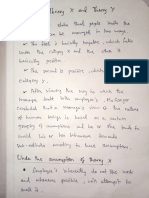 Theory X and Theory Y
state that people inside the
can be managed in two ways.
✓ The first is basically negative, which falls
under the category X and the other is
basically positive
✓ The second is positive,
category Y
✓ After viewing the way in which the
manager dealt with employees, McGregor
concluded that a manager's view of the nature
of human beings is based on a certain
grouping of assumptions and he or she tends to
mold his or her behaviour towards
subordinates according to these assumptions.
Under the assumption of theory X
• Employee's inherently do not like work
and whenever possible, will attempt to
avoid it.